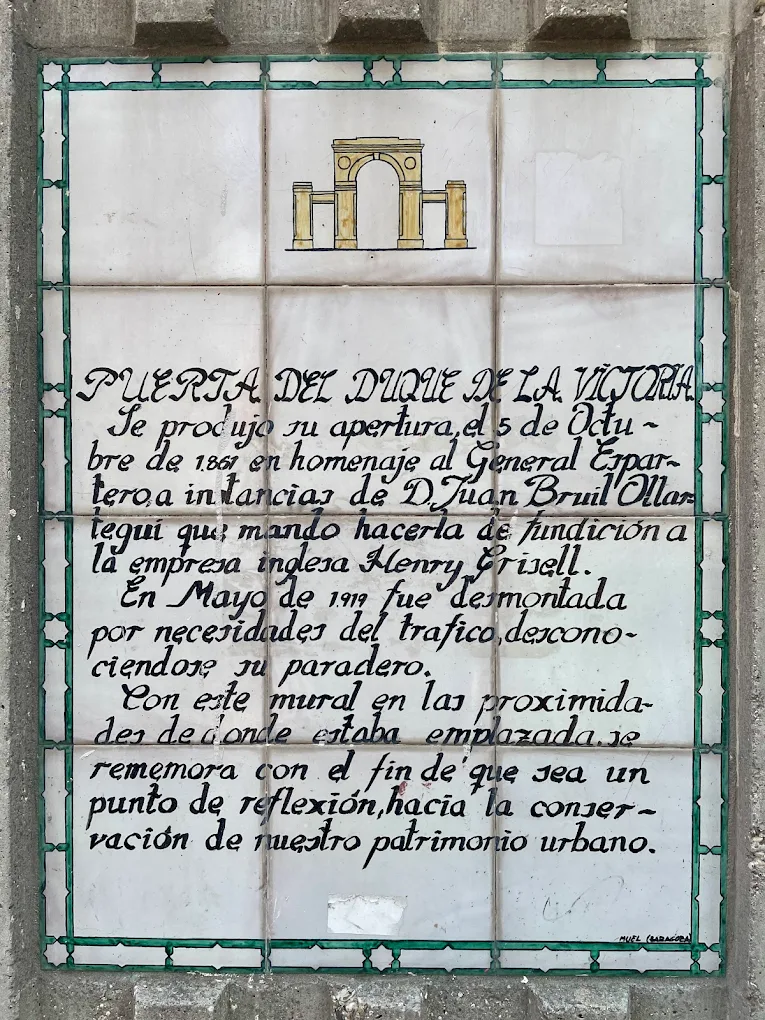 PUERTA DEL DUQUE DE LA VICTORIA
Se produjo su apertura, el 5 de Octu-
bre de 1.861 en homenaje al General Espar-
tero, a instancias de D. Juan Bruil Ollar-
tegui que mando hacerla de fundición a
la empresa inglesa Henry Grisell.
En Mayo de 1.919 fue desmontada
por necesidades del trafico, descono-
ciendose su paradero.
Con este mural en las proximida-
des de donde estaba emplazada, se
rememora con el fin de que sea un
punto de reflexión, hacia la conser-
vación de nuestro patrimonio urbano.
MUEL (ZARAGOZA)